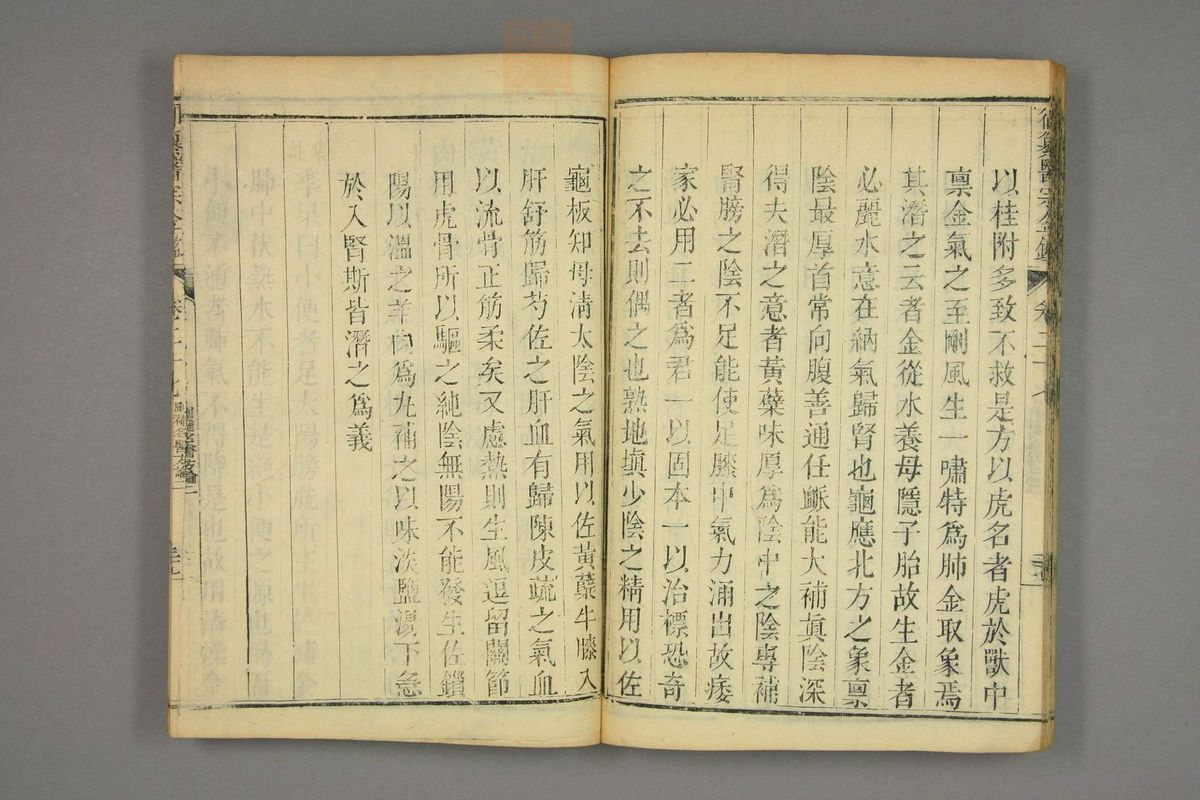 以桂附多致不救是方以虎名者虎於獸中
稟金氣之至剛風生一嘯特爲肺金取象焉
其潛之云者金從水養母隱子胎故生金者
必麗水意在納氣歸腎也龜應北方之象稟
陰最厚首常向腹善通任脈能大補眞陰深
得夫潛之意者黃蘗味厚爲陰中之陰專補
腎膀之陰不足能使足膝中氣力涌出故痿
家必用二者爲君一以固本一以治標恐奇
之不去則偶之也熟地塡少陰之精用以佐
龜板知母淸太陰之氣用以佐黃蘗牛膝入
肝舒筋歸芍佐之肝血有歸陳皮疏之氣血
以流骨正筋柔矣又慮熱則生風逗留關節
用虎骨所以驅之純陰無陽不能發生佐鎖
陽以溫之羊肉爲丸補之以味淡鹽湯下急
於入腎斯皆潛之爲義